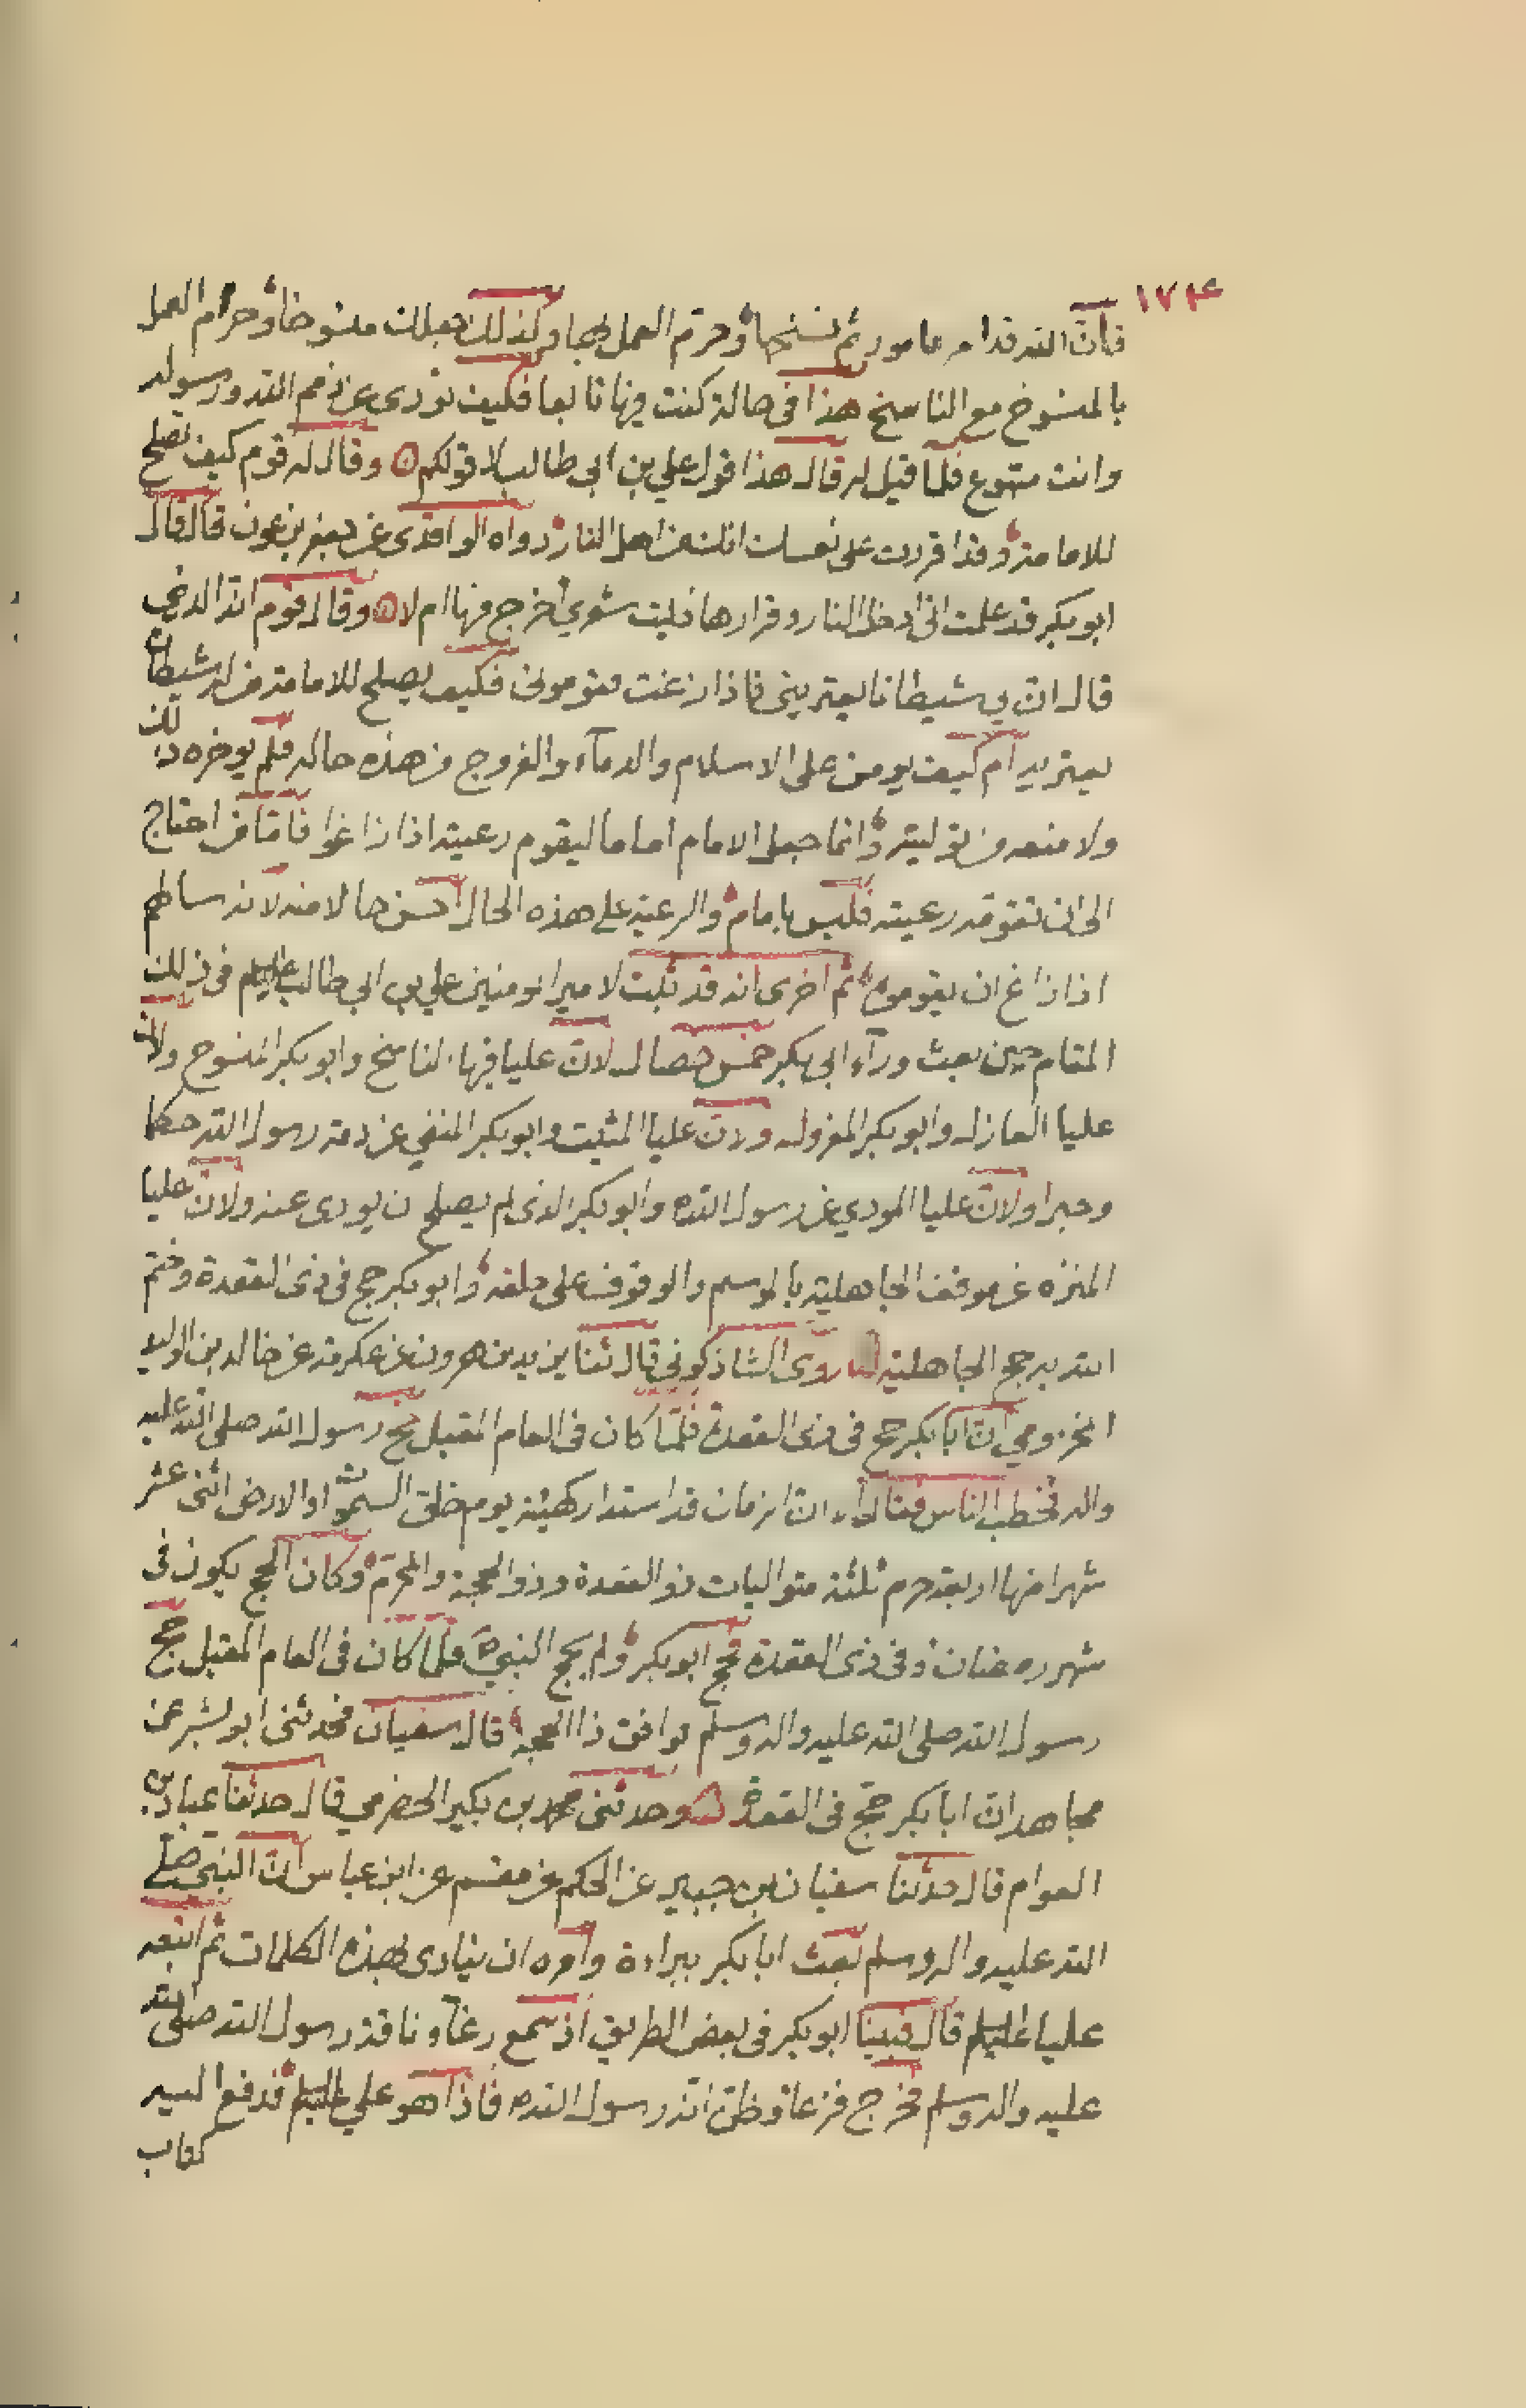 ١٧٤
فان الله قد امر بامور ثم نسخها وحرم العمل بها وكذلك جعلك منسوخا وحرام العمل
بالمنسوخ مع الناسخ هذا في حالة كنت فيها تابعا فكيف تؤدي عن ذمم الله ورسوله
وانت متبوع فلما قيل له قال هذا قول علي بن ابي طالب لا قولكم وقال له قوم كيف تصلح
للامامة وقد اقررت على نفسك انك من اهل النار رواه الواقدي عن جعفر بن عون قال قال
ابو بكر قد علمت اني ادخل النار وقرارها فليت شعري اخرج منها ام لا وقال قوم انه الذي
قال ان لي شيطانا يعتريني فاذا زغت فقوموني فكيف يصلح للامامة من له شيطان
يعتريه ام كيف يومن على الاسلام والدماء والفروج من هذه حاله فلم يوخره ذلك
ولا منعه من توليته وانما جعل الامام اماما ليقوم رعيته اذا زاغوا فاما من احتاج
الى ان تقومه رعيته فليس بامام والرعية على هذه الحال احسن حالا منه لانه سالهم
اذا زاغ ان يقوموه ثم اخرى انه قد ثبت لامير المومنين علي بن ابي طالب عليه السلم في ذلك
المقام حين بعث ورآء ابي بكر خمس خصال لان عليا فيها الناسخ وابو بكر المنسوخ ولان
عليا العازل وابو بكر المعزول ولان عليا المثبت وابو بكر المنفي عن ذمة رسول الله حكما
وجبرا ولان عليا المودي عن رسول الله ص وابو بكر الذي لم يصلح ان يودى عنه ولان عليا
المنزه عن موقف الجاهلية بالموسم والوقوف على حلفه وابو بكر حج في ذي القعدة وختم
الله به حج الجاهلية روى الشاذكوني قال ثنا يزيد بن هرون عن عكرمة عن خالد بن الوليد
المخزومي ان ابا بكر حج في ذي القعدة فلما كان في العام المقبل حج رسول الله صلى الله عليه
واله فخطب الناس فقال ان الزمان قد استدار كهيئة يوم خلق السموات والارض اثنى عشر
شهرا منها اربعة حرم ثلثة متواليات ذو القعدة وذو الحجة والمحرم وكان الحج يكون في
شهر رمضان وفي ذي القعدة فحج ابو بكر ولم يحج النبي ص فلما كان في العام المقبل حج
رسول الله صلى الله عليه واله وسلم فوافق ذا الحجة قال سفيان فحدثني ابو بشر عن
مجاهد ان ابا بكر حج في القعدة وحدثني محمد بن بكير الحضرمي قال حدثنا عباد بن
العوام قال حدثنا سفيان بن جبير عن الحكم عن مقسم عن ابن عباس ان النبي صلى
الله عليه واله وسلم بعث ابا بكر ببراءة وامره ان ينادي بهذه الكلمات ثم اتبعه
عليا عليه السلم قال فبينا ابو بكر في بعض الطريق اذ سمع رغاء ناقة رسول الله صلى الله
عليه واله وسلم فخرج فزعا وظن انه رسول الله ص فاذا هو علي عليه السلم فدفع اليه
كتاب